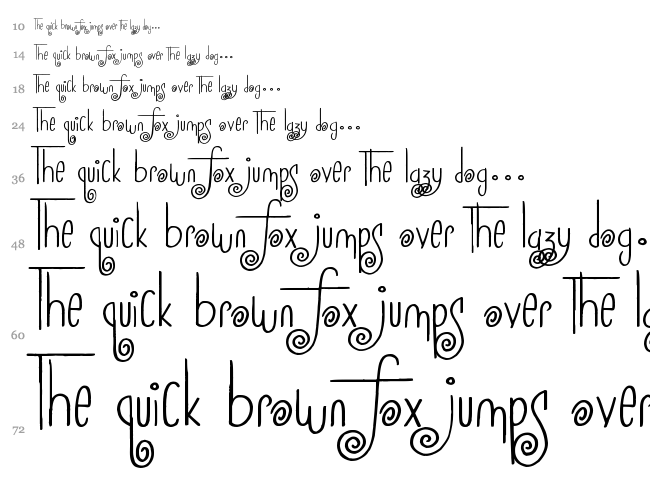 10 The quick brown fox jumps over the lazy dog...
14 The quick brown fox jumps over The lazy dog...
18 The quick brown fox jumps over The lazy dog...
24 The quick brown fox jumps over The lazy dog...
36 The quick brown fox jumps over The lazy dog...
48 The quick brown fox jumps over The lazy dog.
60 The quick brown fox jumps over The l
72 The quick brown fox jumps over